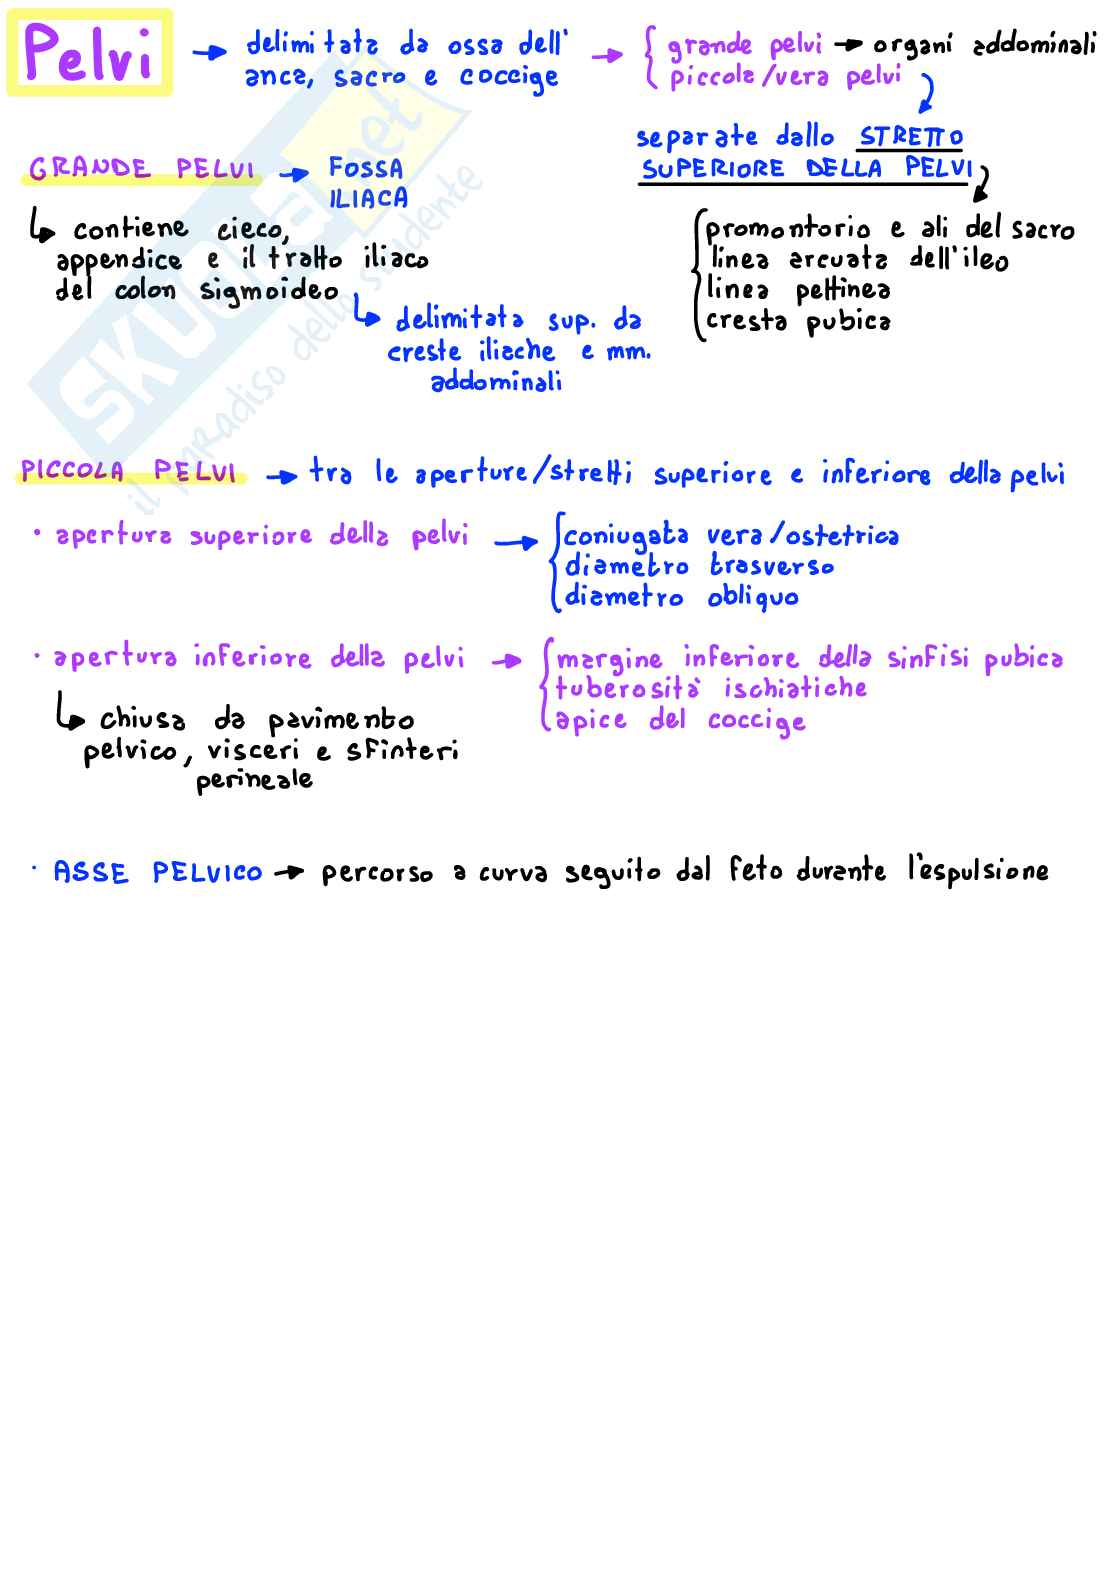 Pelvi → delimitata da ossa dell'
anca, sacro e coccige
→ { grande pelvi → organi addominali
piccola/vera pelvi
separate dallo STRETTO
SUPERIORE DELLA PELVI
promontorio e ali del sacro
linea arcuata dell'ileo
linea pettinea
cresta pubica
GRANDE PELVI → FOSSA
ILIACA
contiene cieco,
appendice e il tratto iliaco
del colon sigmoideo
delimitata sup. da
creste iliache e mm.
addominali
PICCOLA PELVI → tra le aperture/stretti superiore e inferiore della pelvi
· apertura superiore della pelvi → { coniugata vera/ostetrica
diametro trasverso
diametro obliquo
· apertura inferiore della pelvi → { margine inferiore della sinfisi pubica
tuberosità ischiatiche
apice del coccige
chiusa da pavimento
pelvico, visceri e sfinteri
perineale
· ASSE PELVICO → percorso a curva seguito dal feto durante l'espulsione
SKUOLA.net
il paradiso dello studente